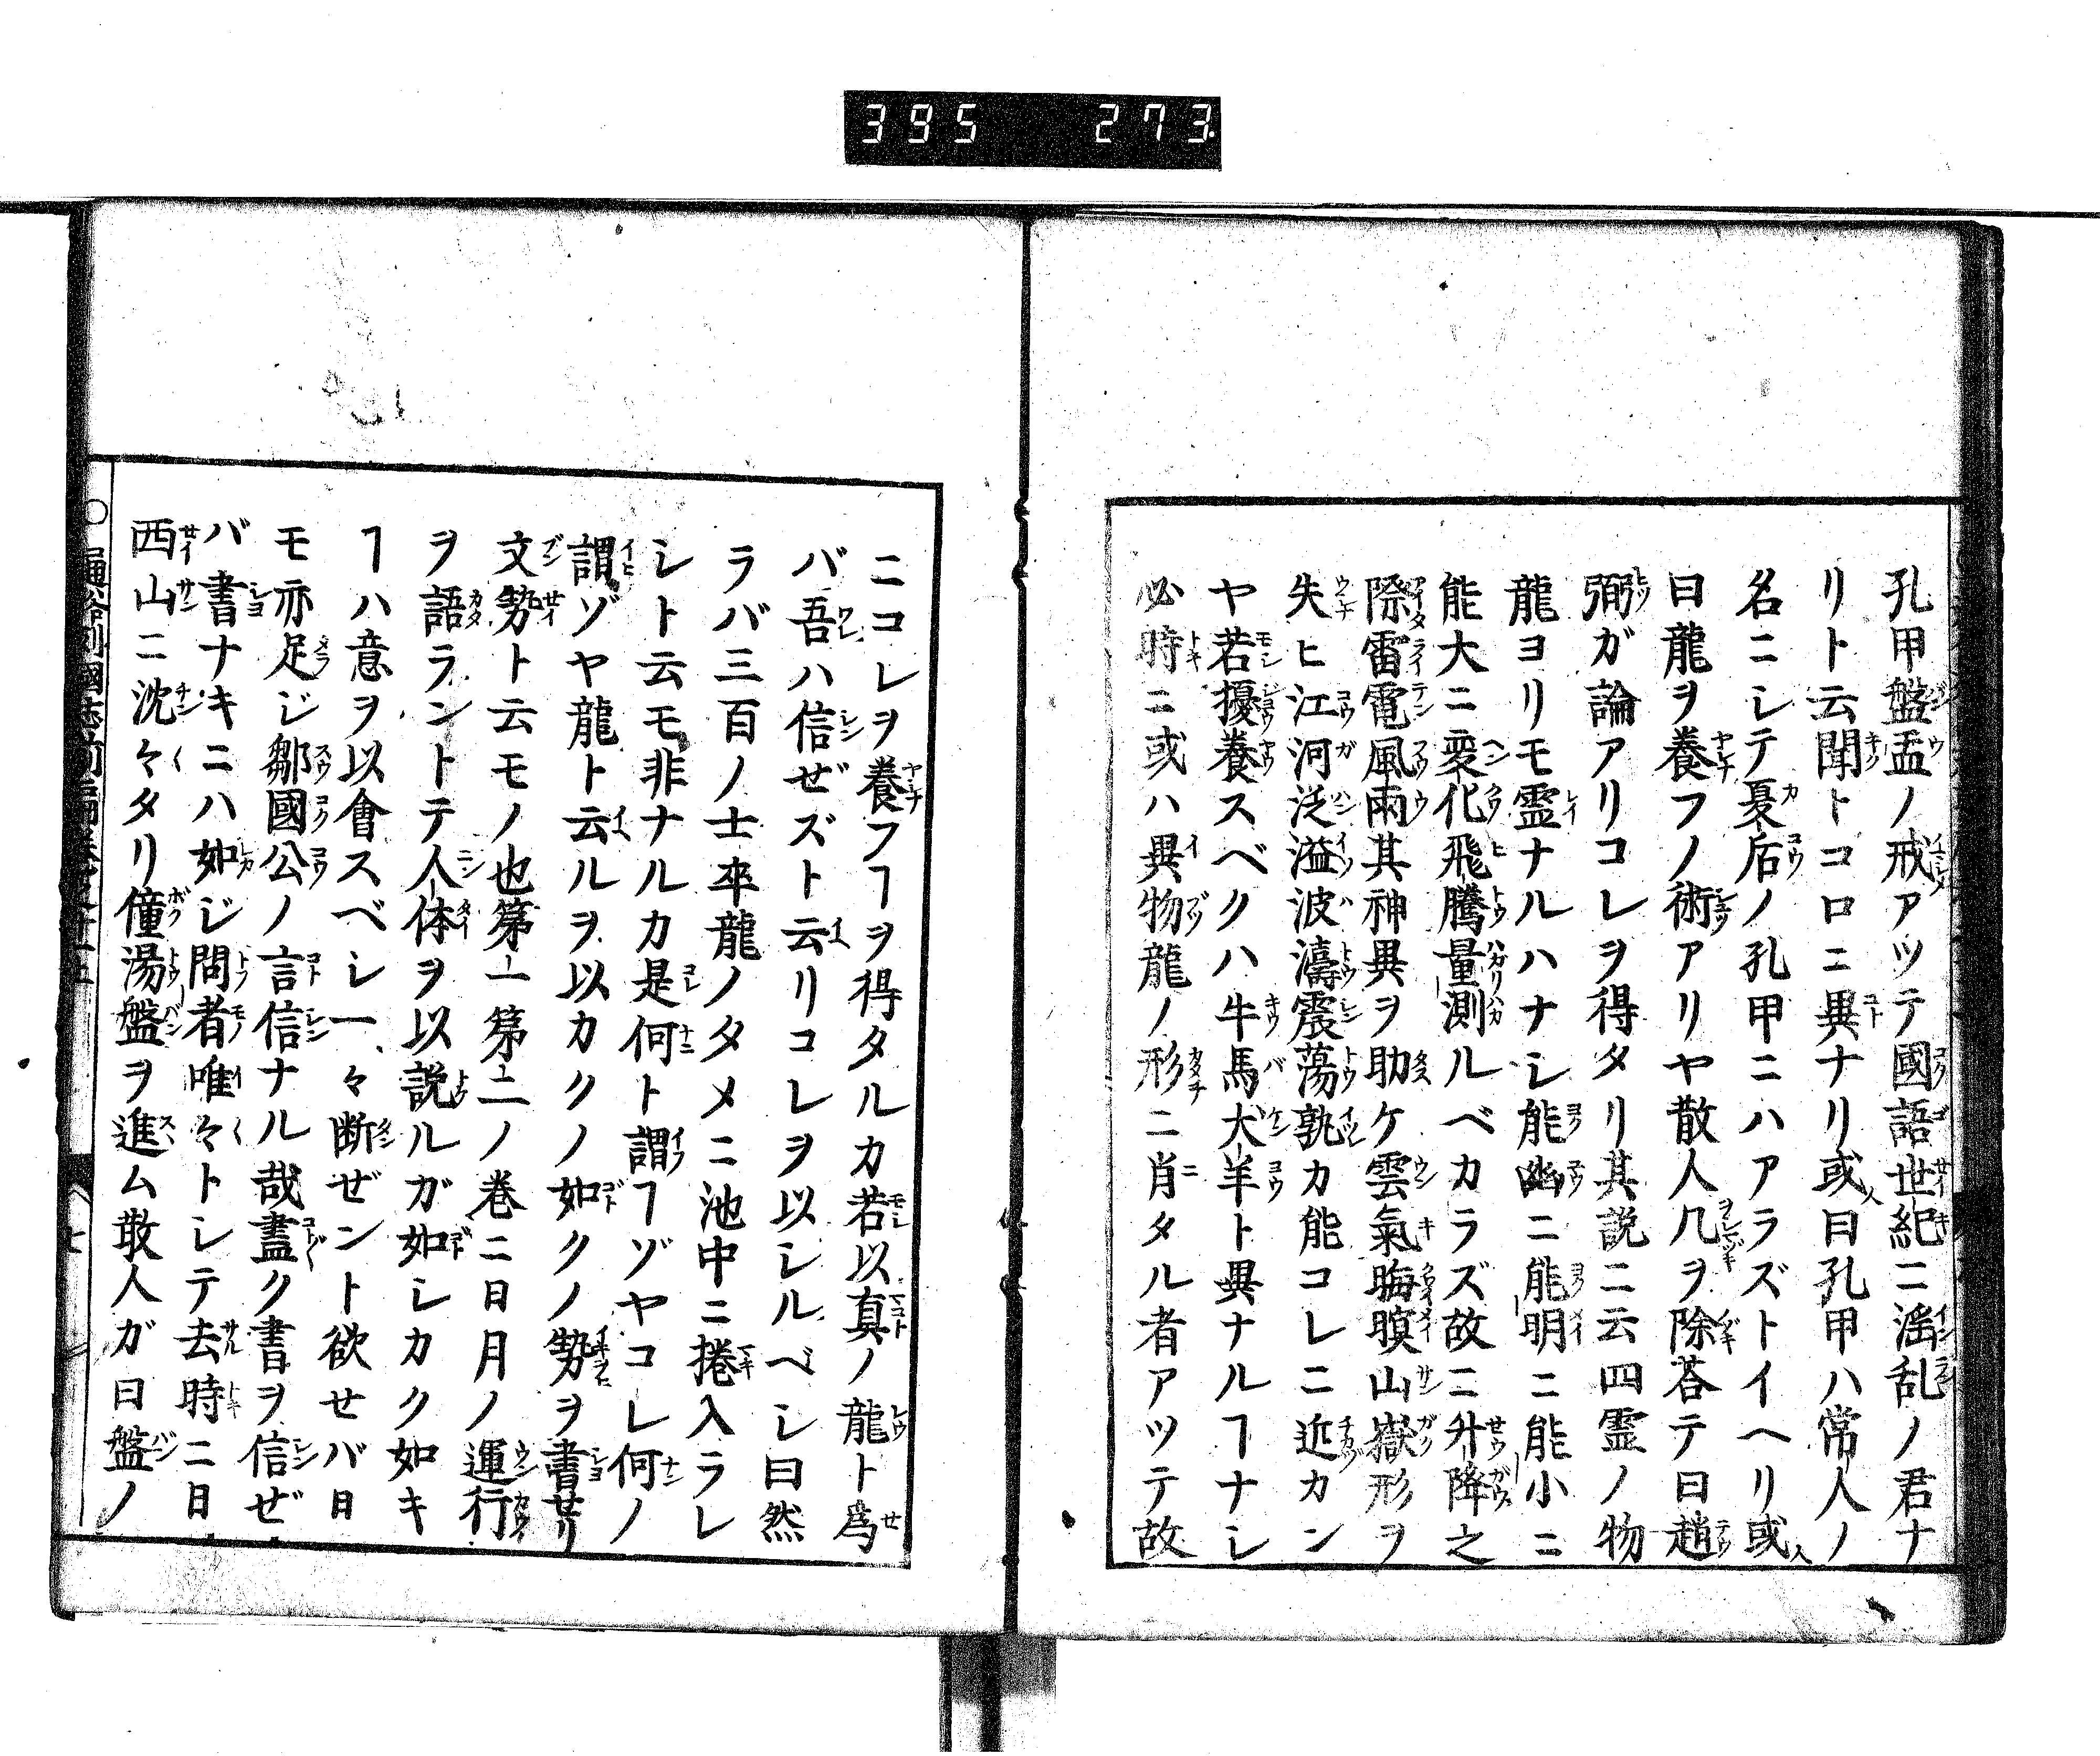 395 273
孔甲盤盂ノ戒アツテ國語世紀ニ滛乱ノ君ナ
リト云聞トコロニ異ナリ或人曰孔甲ハ常人ノ
名ニシテ夏后ノ孔甲ニハアラズトイヘリ或人
曰龍ヲ養フノ術アリヤ散人几ヲ除荅テ曰趙
弼ガ論アリコレヲ得タリ其説ニ云四霊ノ物
龍ヨリモ霊ナルハナシ能幽ニ能明ニ能小ニ
能大ニ変化飛騰量測ルベカラズ故ニ升降之
際雷電風雨其神異ヲ助ケ雲氣晦瞑山嶽形ヲ
失ヒ江河泛溢波濤震蕩孰カ能コレニ近カン
ヤ若擾養スベクハ牛馬犬羊ト異ナルヿナシ
必時ニ或ハ異物龍ノ形ニ肖タル者アツテ故
ニコレヲ養フヿヲ得タルカ若以真ノ龍ト爲
バ吾ハ信ぜズト云リコレヲ以シルベシ曰然
ラバ三百ノ士卒龍ノタメニ池中ニ捲入ラレ
シト云モ非ナルカ是何ト謂ヿゾヤコレ何ノ
謂ゾヤ龍ト云ルヲ以カクノ如クノ勢ヲ書せリ
文勢ト云モノ也第一第二ノ巻ニ日月ノ運行
ヲ語ラントテ人体ヲ以説ルガ如シカク如キ
ヿハ意ヲ以會スベシ一々断ぜント欲せバ日
モ亦足じ鄒國公ノ言信ナル哉盡ク書ヲ信ぜ
バ書ナキニハ如じ問者唯々トシテ去時ニ日
西山ニ沈々タリ僮湯盤ヲ進ム散人ガ曰盤ノ